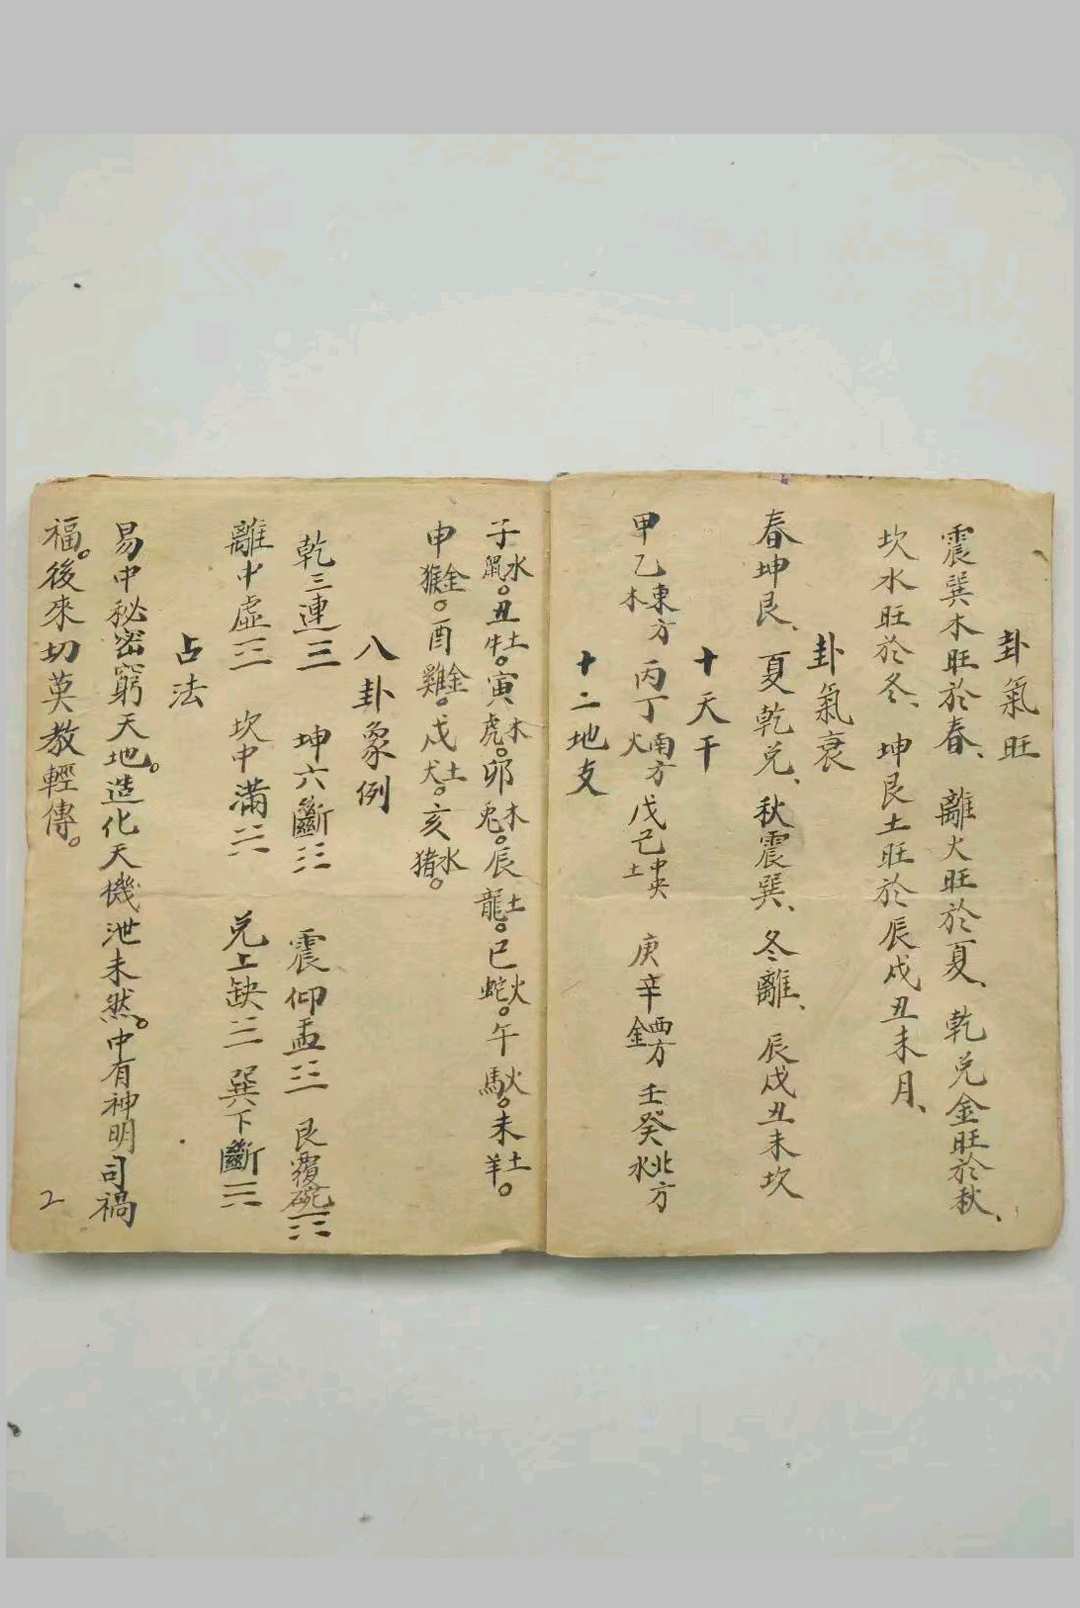 卦氣旺
震巽木旺於春、離火旺於夏、乾兌金旺於秋、
坎水旺於冬、坤艮土旺於辰戌丑未月、
卦氣衰
春坤艮、夏乾兌、秋震巽、冬離、辰戌丑未坎
十天干
甲乙東方木 丙丁南方火 戊己中央土 庚辛西方金 壬癸北方水
十二地支
子水鼠。丑土牛。寅木虎。卯木兔。辰土龍。巳火蛇。午火馬。未土羊。
申金猴。酉金雞。戌土犬。亥水猪。
八卦象例
乾三連☰ 坤六斷☷ 震仰盂☳ 艮覆碗☶
離中虛☲ 坎中滿☵ 兌上缺☱ 巽下斷☴
占法
易中秘密窮天地。造化天機泄未然。中有神明司禍
福。後來切莫教輕傳。
2